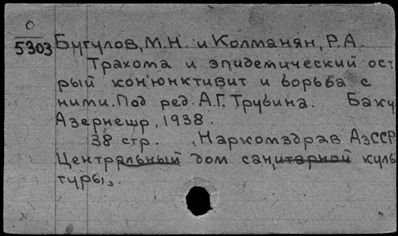 0
5303
Бугулов, М.Н. и Колманян, Р.А.
Трахома и эпидемический ост
рый кон'юнктивит и борьба с
ними. Под ред. А.Г. Трубина. Баку
Азернешр, 1938.
38 стр. , Наркомздрав АзССР
Центральный дом санитарной куль
туры,